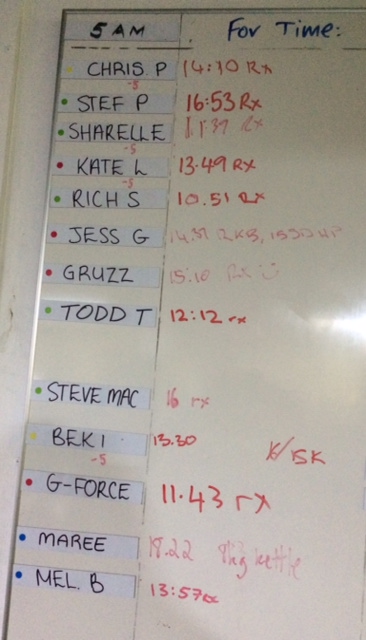 5 AM For Time:
CHRIS. P 14:10 Rx
-5
STEF P 16:53 Rx
SHARELLE 11:39 Rx
-5
KATE L 13.49 Rx
-5
RICH S 10.51 Rx
JESS G
GRUZZ 15:10 Rx
TODD T 12:12 rx
STEVE MAC 16 rx
BEK I 13.30 15K
-5
G-FORCE 11.43 rx
MAREE 18.22 8kg kettle
MEL. B 13:57 rx